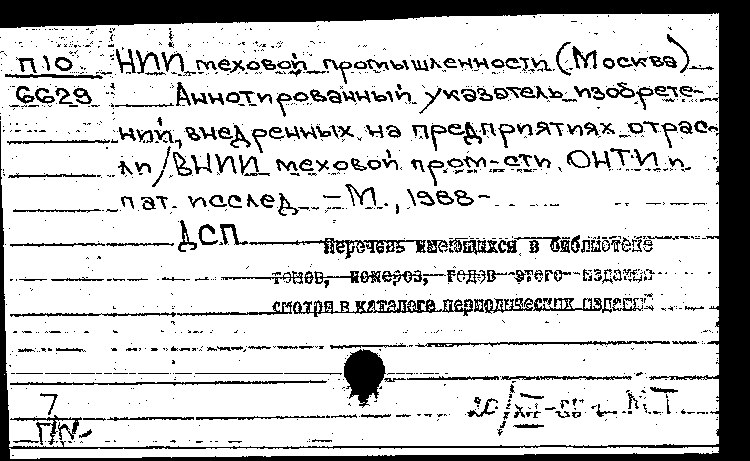 П10 НИИ меховой промышленности (Москва)
6629 Аннотированный указатель изобрете-
ний, внедренных на предприятиях отрас-
ли / ВНИИ меховой пром-сти. ОНТИ и
пат. исслед. – М., 1988-
ДСП.
Перечень имеющихся в библиотеке
томов, номеров, годов этого издания
смотри в каталоге периодических изданий
7
20/XII-88 г. М.Т.